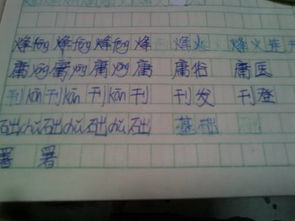 烽 fēng 烽 fēng 烽 fēng 烽 烽火 烽火连
庸 yōng 庸 yōng 庸 yōng 庸 庸俗 庸医
刊 kān 刊 kān 刊 kān 刊 刊发 刊登
础 chǔ 础 chǔ 础 chǔ 础 基础
署 署